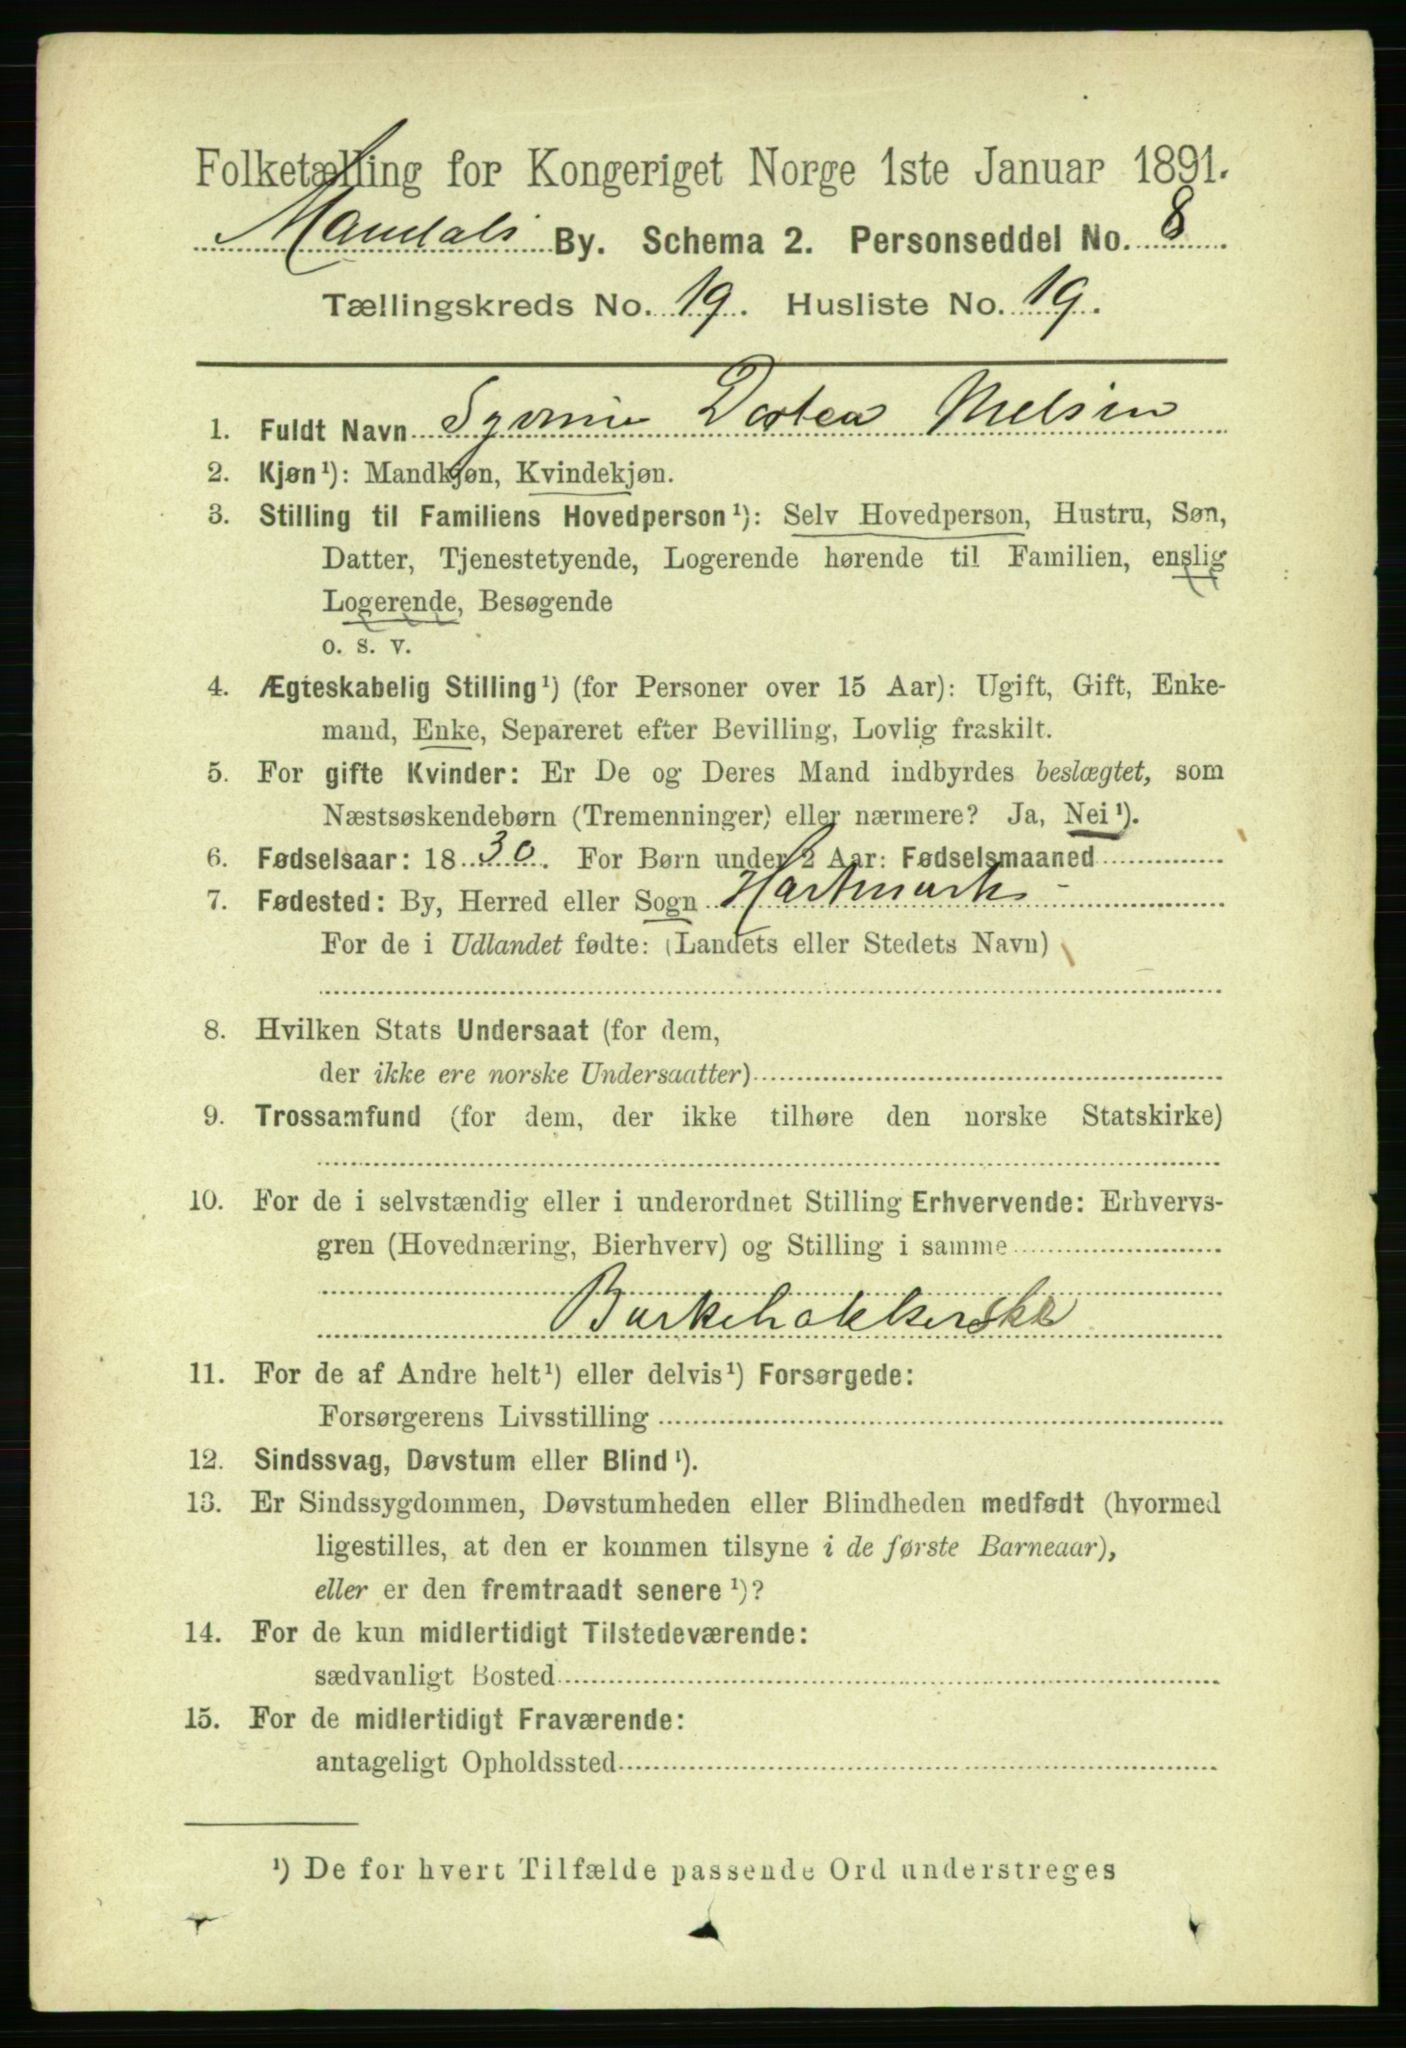 Folketælling for Kongeriget Norge 1ste Januar 1891.
Mandals By. Schema 2. Personseddel No. 8
Tællingskreds No. 19. Husliste No. 19.
1. Fuldt Navn Dortea Nielsen
2. Kjøn¹): Mandkjøn, Kvindekjøn.
3. Stilling til Familiens Hovedperson¹): Selv Hovedperson, Hustru, Søn,
Datter, Tjenestetyende, Logerende hørende til Familien, enslig
Logerende, Besøgende
o. s. v.
4. Ægteskabelig Stilling¹) (for Personer over 15 Aar): Ugift, Gift, Enke-
mand, Enke, Separeret efter Bevilling, Lovlig fraskilt.
5. For gifte Kvinder: Er De og Deres Mand indbyrdes beslægtet, som
Næstsøskendebørn (Tremenninger) eller nærmere? Ja, Nei¹).
6. Fødselsaar: 1830. For Børn under 2 Aar: Fødselsmaaned
7. Fødested: By, Herred eller Sogn Hartmark
For de i Udlandet fødte: (Landets eller Stedets Navn)
8. Hvilken Stats Undersaat (for dem,
der ikke ere norske Undersaatter)
9. Trossamfund (for dem, der ikke tilhøre den norske Statskirke)
10. For de i selvstændig eller i underordnet Stilling Erhvervende: Erhvervs-
gren (Hovednæring, Bierhverv) og Stilling i samme
Barkehakkerske
11. For de af Andre helt¹) eller delvis¹) Forsørgede:
Forsørgerens Livsstilling
12. Sindssvag, Døvstum eller Blind¹).
13. Er Sindssygdommen, Døvstumheden eller Blindheden medfødt (hvormed
ligestilles, at den er kommen tilsyne i de første Barneaar),
eller er den fremtraadt senere¹)?
14. For de kun midlertidigt Tilstedeværende:
sædvanligt Bosted
15. For de midlertidigt Fraværende:
antageligt Opholdssted
¹) De for hvert Tilfælde passende Ord understreges